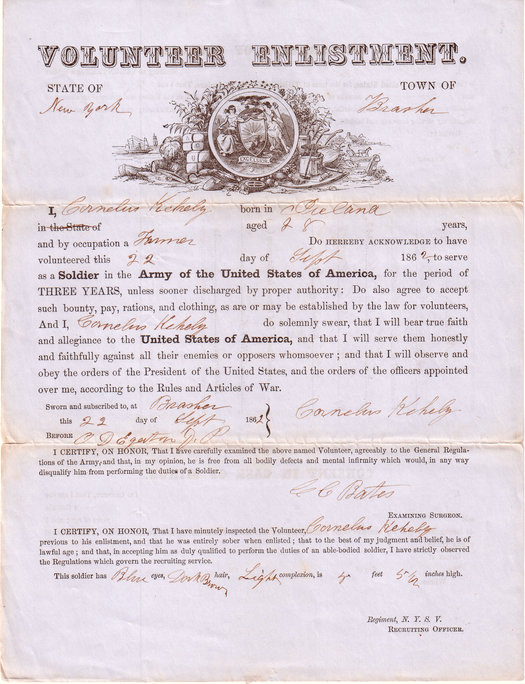 VOLUNTEER ENLISTMENT.
STATE OF
TOWN OF
New York
Brasher
EXCELSIOR
I, Cornelius Kehely born in Ireland
in the State of aged 28 years,
and by occupation a Farmer Do HEREBY ACKNOWLEDGE to have
volunteered this 22 day of Sept 1862, to serve
as a Soldier in the Army of the United States of America, for the period of
THREE YEARS, unless sooner discharged by proper authority: Do also agree to accept
such bounty, pay, rations, and clothing, as are or may be established by the law for volunteers,
And I, Cornelius Kehely do solemnly swear, that I will bear true faith
and allegiance to the United States of America, and that I will serve them honestly
and faithfully against all their enemies or opposers whomsoever; and that I will observe and
obey the orders of the President of the United States, and the orders of the officers appointed
over me, according to the Rules and Articles of War.
Sworn and subscribed to, at Brasher
this 22 day of Sept 1862
Cornelius Kehely
BEFORE C D Egerton J. P.
I CERTIFY, ON HONOR, That I have carefully examined the above named Volunteer, agreeably to the General Regula-
tions of the Army, and that, in my opinion, he is free from all bodily defects and mental infirmity which would, in any way
disqualify him from performing the duties of a Soldier.
C C Bates
EXAMINING SURGEON.
I CERTIFY, ON HONOR, That I have minutely inspected the Volunteer, Cornelius Kehely
previous to his enlistment, and that he was entirely sober when enlisted; that to the best of my judgment and belief, he is of
lawful age; and that, in accepting him as duly qualified to perform the duties of an able-bodied soldier, I have strictly observed
the Regulations which govern the recruiting service.
This soldier has Blue eyes, Dark Brown hair, Light complexion, is feet 5 1/2 inches high.
Regiment, N. Y. S. V.
RECRUITING OFFICER.